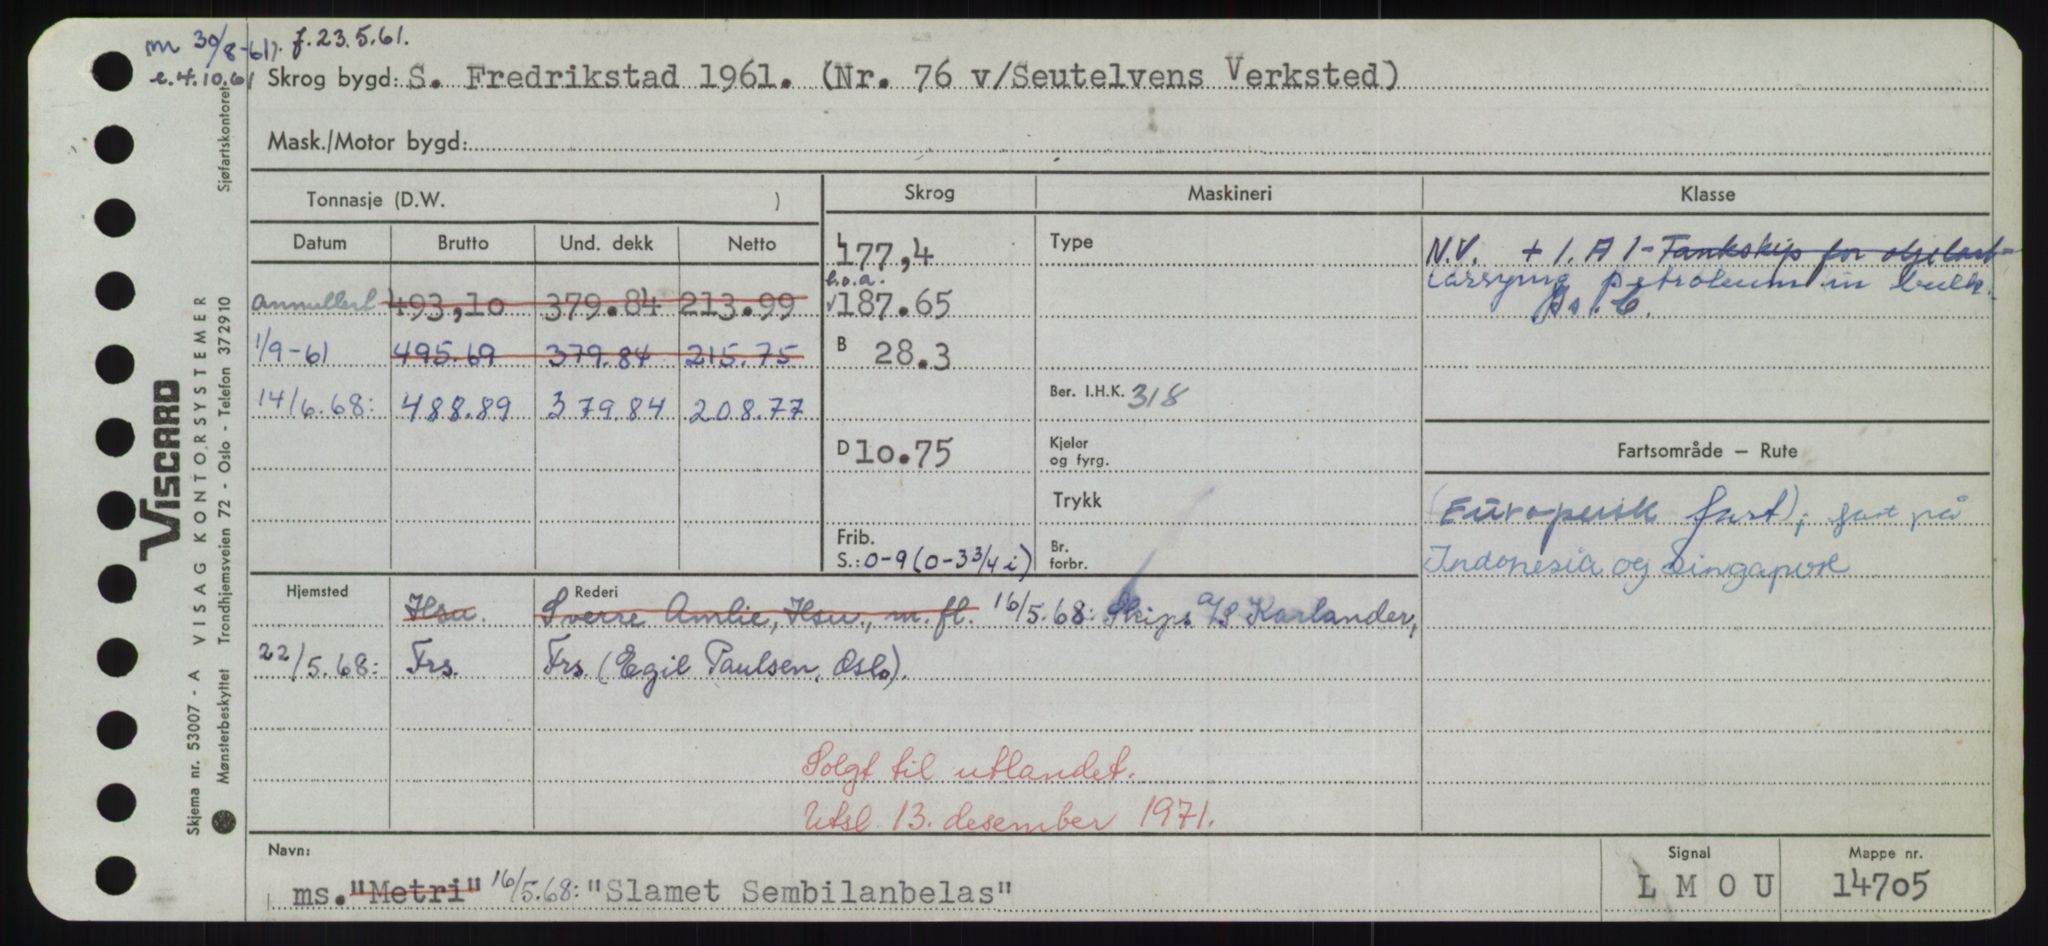 m 30/8-61). f. 23.5.61.
e. 4.10.61 Skrog bygd: S. Fredrikstad 1961. (Nr. 76 v/Seutelvens Verksted)
Mask./Motor bygd:
Tonnasje (D.W. ) Skrog Maskineri Klasse
Datum Brutto Und. dekk Netto L 177,4 Type N.V. + 1. A 1 - Tankskip for
annullert 493,10 379.84 213.99 l.o.a. 187.65 carrying petroleum in bulk.
Is. C.
1/9-61 495.69 379.84 215.75 B 28.3
14/6.68: 488.89 379.84 208.77 Ber. I.H.K. 318
D 10.75 Kjeler og fyrg. Fartsområde – Rute
Trykk (Europeisk fart); fart på
Frib. S.: 0-9 (0-3 3/4 i) Br. forbr. Indonesia og Singapore
Hjemsted Rederi
Hsu. Sverre Amlie, Hsu., m. fl. 16/5.68: Skips A/S Karlander,
22/5.68: Frs. Frs. (Egil Paulsen, Oslo).
Solgt til utlandet.
Utsl. 13. desember 1971.
Navn: Signal Mappe nr.
ms. "Metri" 16/5.68: "Slamet Sembilanbelas" L M O U 14705
VISCARD
VISAG KONTORSYSTEMER
Skjema nr. 53007 - A
Mønsterbeskyttet Trondhjemsveien 72 - Oslo - Telefon 372910
Sjøfartskontoret